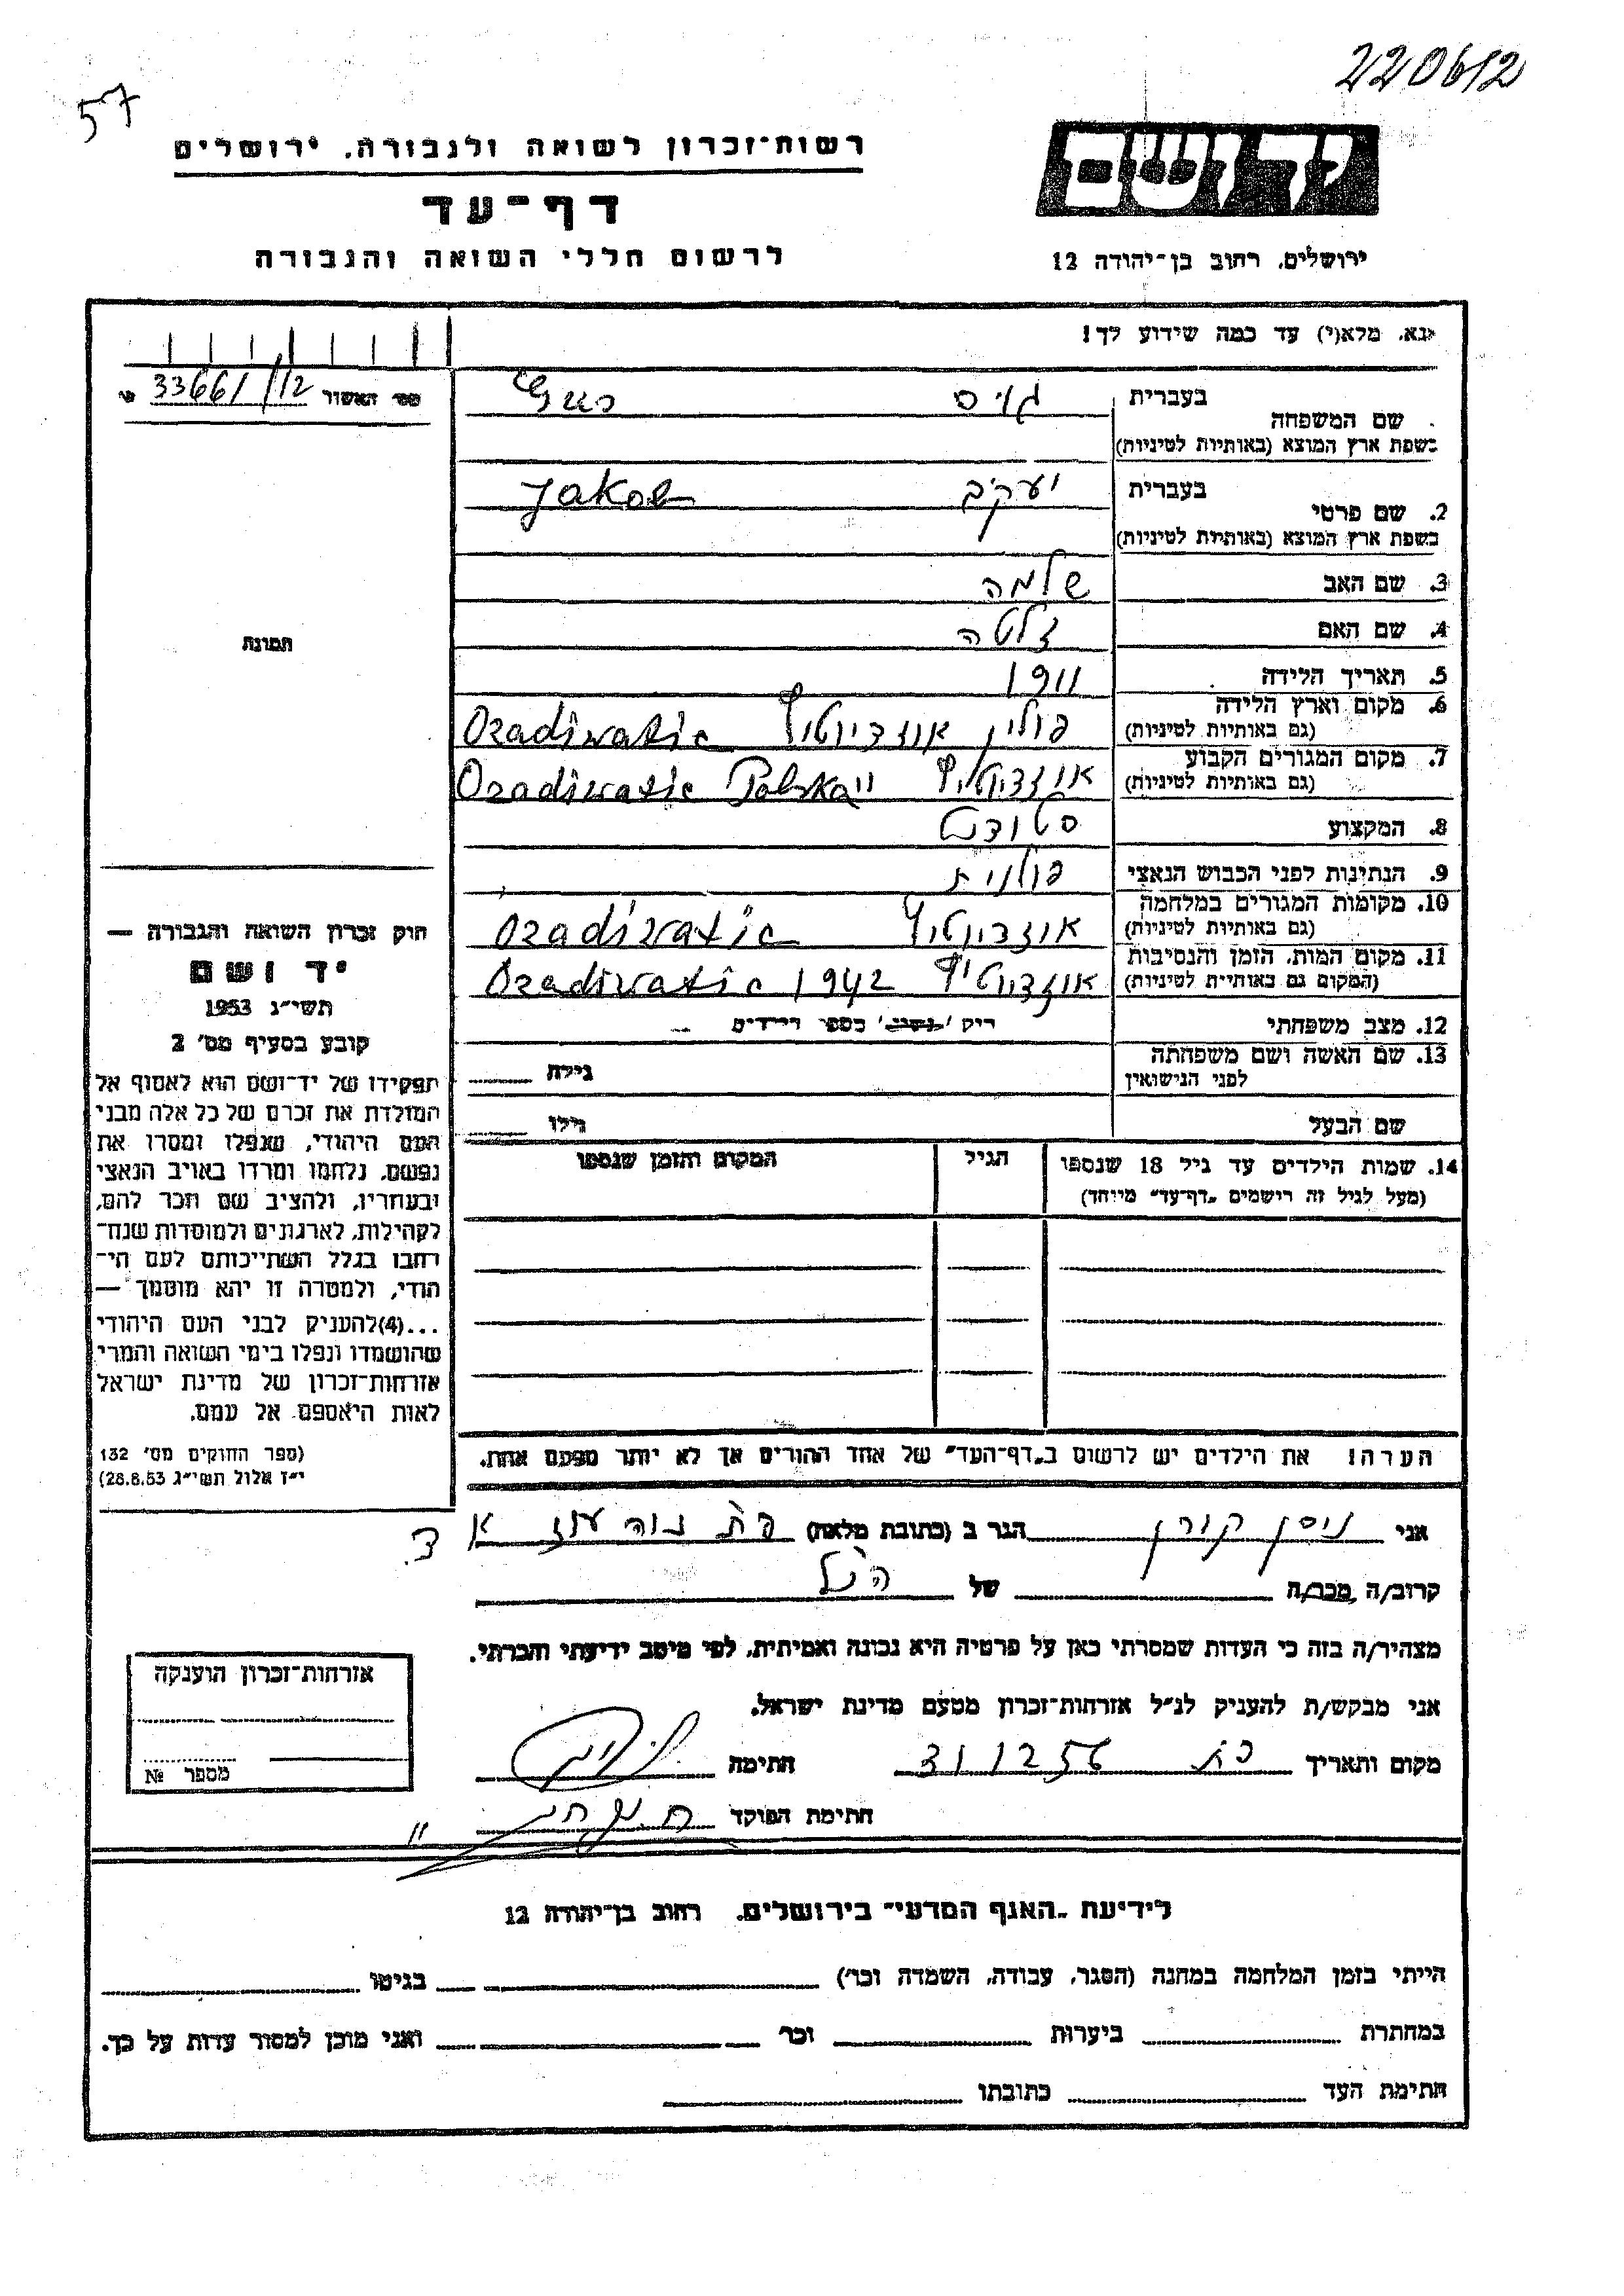 220612
57
רשות־זכרון לשואה ולגבורה, ירושלים
יד ושם
דף־עד
לרשום חללי השואה והגבורה
ירושלים, רחוב בן־יהודה 12
נא, מלא(י) עד כמה שידוע לך!
מס׳ האשור 33661/112
בעברית גויס
שם המשפחה
בשפת ארץ המוצא (באותיות לטיניות)
בעברית יעקב Jakob
2. שם פרטי
בשפת ארץ המוצא (באותיות לטיניות)
3. שם האב שלמה
4. שם האם זלטה
תמונה
5. תאריך הלידה 1911
6. מקום וארץ הלידה פולין
(גם באותיות לטיניות)
7. מקום המגורים הקבוע Polska
(גם באותיות לטיניות)
8. המקצוע סטודנט
9. הנתינות לפני הכבוש הנאצי פולנית
10. מקומות המגורים במלחמה
(גם באותיות לטיניות)
11. מקום המות, הזמן והנסיבות 1942
(המקום גם באותיות לטיניות)
12. מצב משפחתי רוק / נשוי / מספר הילדים
13. שם האשה ושם משפחתה גילה
לפני הנישואין
שם הבעל גילו
14. שמות הילדים עד גיל 18 שנספו הגיל המקום והזמן שנספו
(מעל לגיל זה רישמים „דף־עד״ מיוחד)
הערה! את הילדים יש לרשום ב„דף־העד״ של אחד ההורים אך לא יותר מפעם אחת.
חוק זכרון השואה והגבורה —
יד ושם
תשי״ג 1953
קובע בסעיף מס׳ 2
תפקידו של יד־ושם הוא לאסוף אל
המולדת את זכרם של כל אלה מבני
העם היהודי, שנפלו ומסרו את
נפשם, נלחמו ומרדו באויב הנאצי
ובעוזריו, ולהציב שם וזכר להם,
לקהילות, לארגונים ולמוסדות שנח־
רבו בגלל השתייכותם לעם הי־
הודי, ולמטרה זו יהא מוסמך —
...(4) להעניק לבני העם היהודי
שהושמדו ונפלו בימי השואה והמרי
אזרחות־זכרון של מדינת ישראל
לאות היאספם אל עמם.
(ספר החוקים מס׳ 132
י״ז אלול תשי״ג 28.8.53)
אני ניסן קורן הגר ב (כתובת מלאה) פ״ת נוה עוז
קרוב/ה מכר/ה של הנ״ל
מצהיר/ה בזה כי העדות שמסרתי כאן על פרטיה היא נכונה ואמיתית, לפי מיטב ידיעתי והכרתי.
אני מבקש/ת להעניק לנ״ל אזרחות־זכרון מטעם מדינת ישראל.
מקום ותאריך פ״ת 31 12 56 חתימה
חתימת הפוקד
אזרחות־זכרון הוענקה
מספר №
לידיעת „האגף המדעי״ בירושלים, רחוב בן־יהודה 12
הייתי בזמן המלחמה במחנה (הסגר, עבודה, השמדה וכו׳) בגיטו
במחתרת ביערות וכו׳ ואני מוכן למסור עדות על כך.
חתימת העד כתובתו